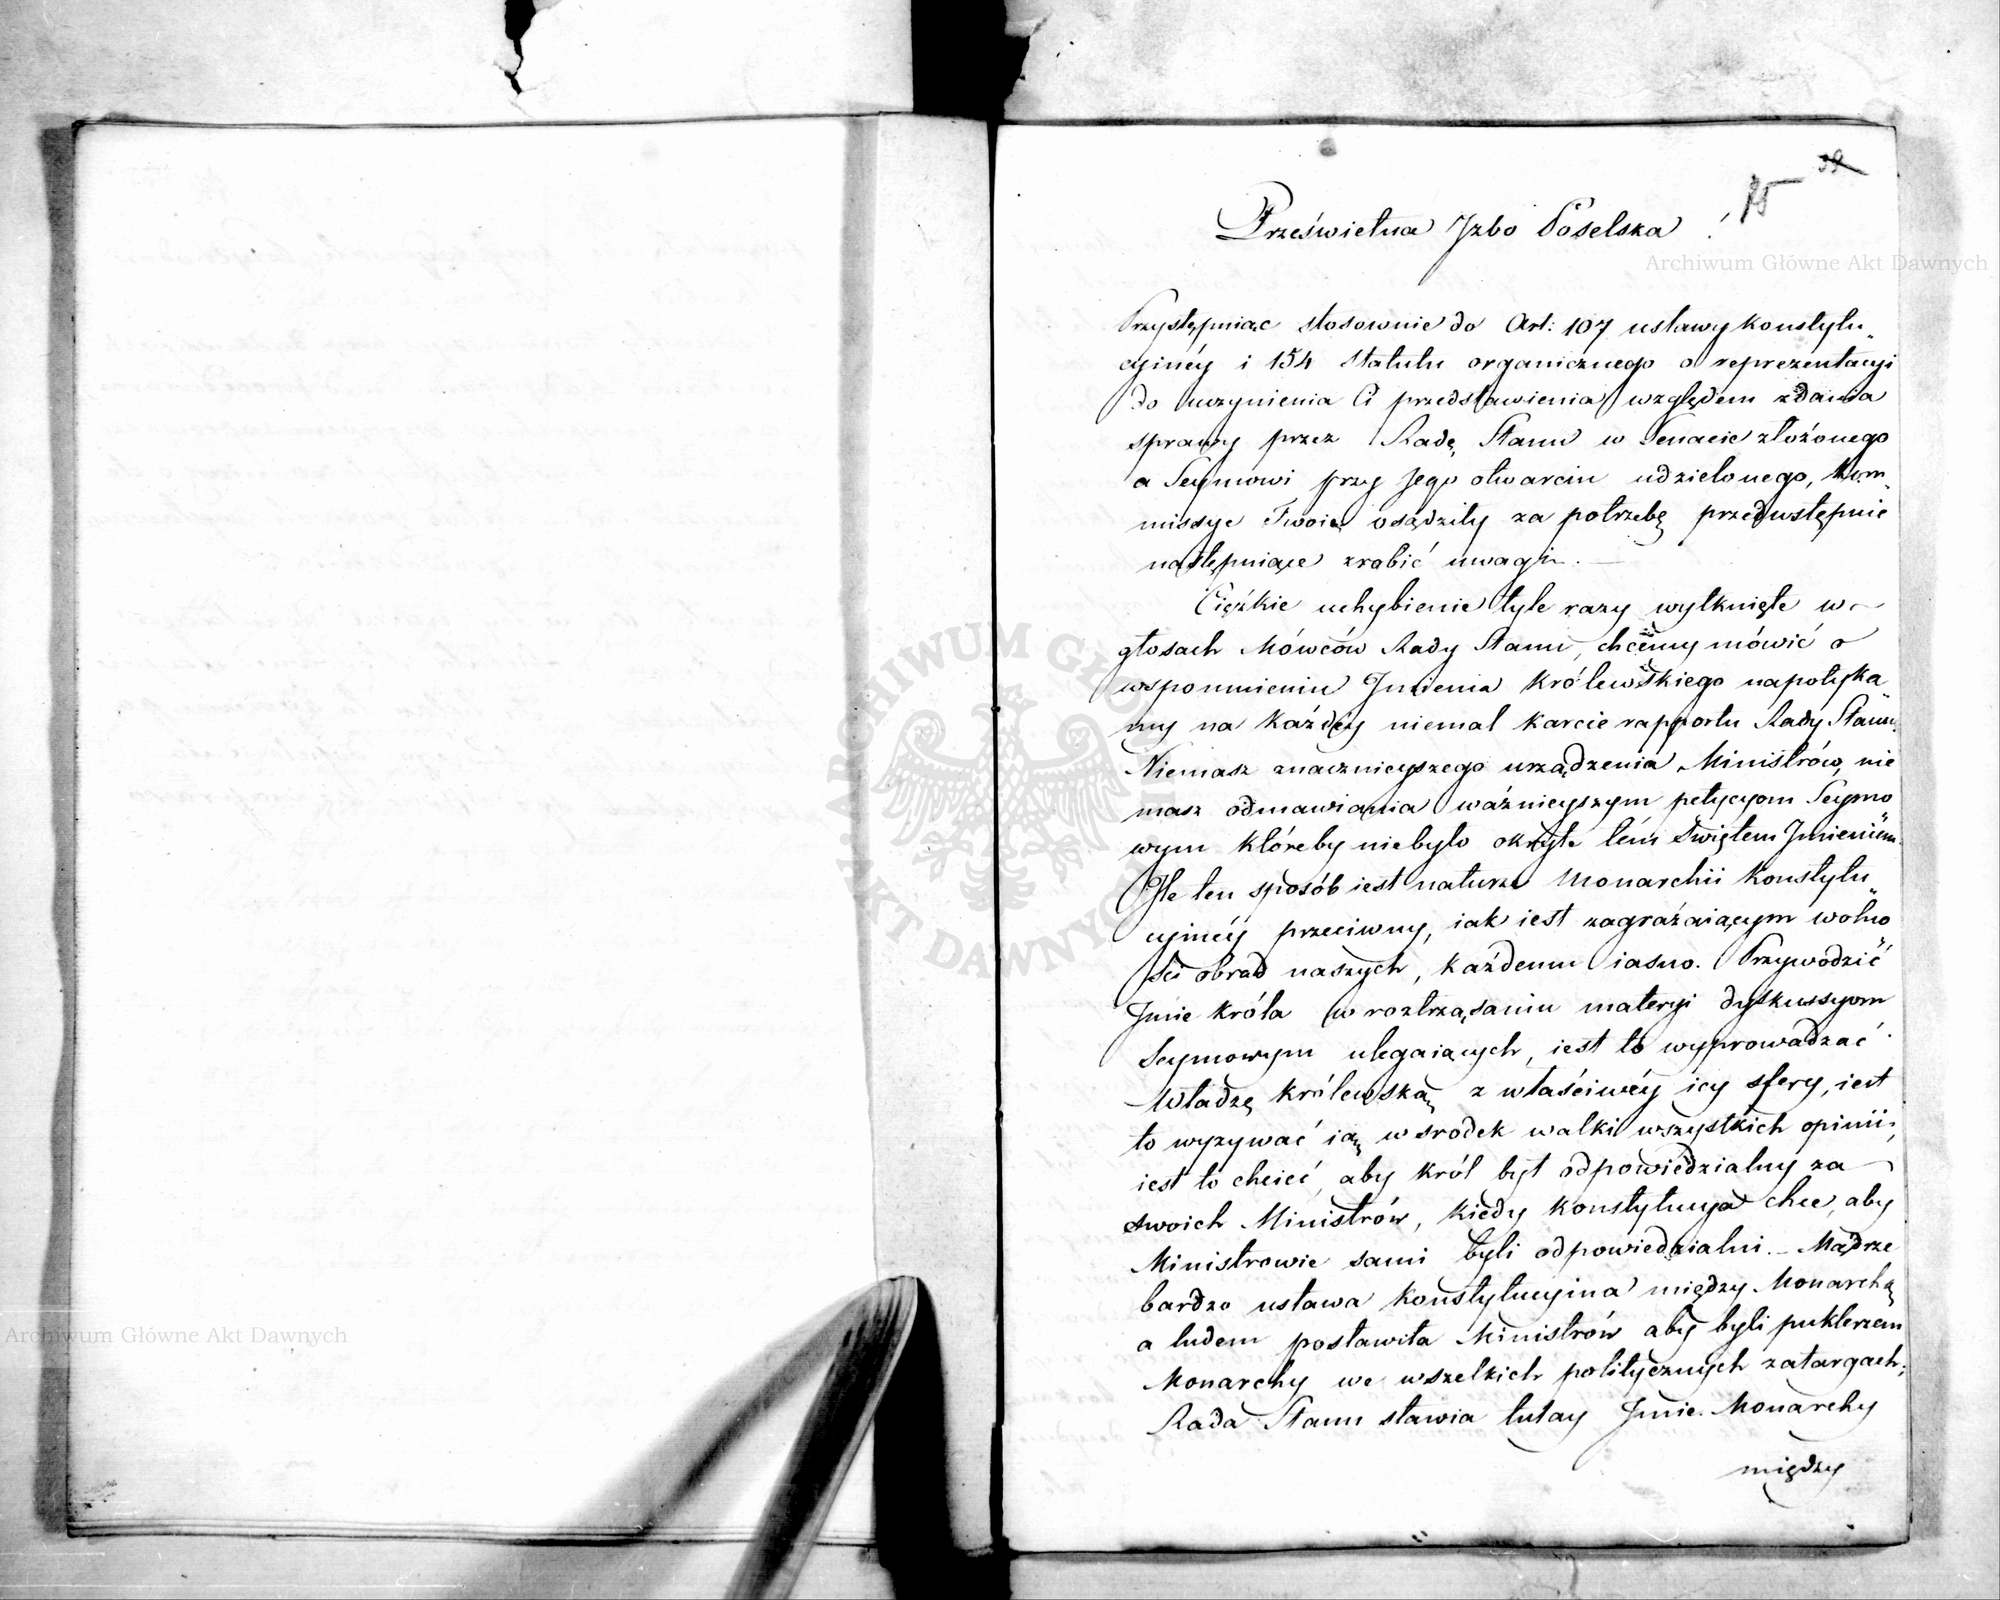 39
15
Prześwietna Jzbo Poselska !
Przystępuiąc stosownie do Art: 107 ustawy konstytu„
cyinéy i 154 Statutu organicznego o reprezentacyi
do uczynienia Ci przedstawienia względem zdania
sprawy przez Radę Stanu w Senacie złożonego
a Seymowi przy Jego otwarciu udzielonego, Kom„
missye Twoie osądziły za potrzebę przedwstępnie
następuiące zrobić uwagi. —
Ciężkie uchybienie tyle razy wytknięte w
głosach Mówców Rady Stanu, chcemy mówić o
wspomnieniu Jmienia Królewskiego napotyka„
my na każdéy niemal karcie rapportu Rady Stanu.
Niemasz znacznieyszego urządzenia Ministrów, nie
masz odmawiania ważnieyszym petycyom Seymo„
wym któreby niebyło okryte tém Świętem Jmieniem.
Jle ten sposób iest naturze Monarchii Konstytu„
cyinéy przeciwny, iak iest zagrażaiącym wolno„
ści obrad naszych, każdemu iasno. Przywodzić
Jmie Króla w roztrząsaniu materyi dyskussyom
Seymowym ulegaiących, iest to wyprowadzać
Władzę Królewską z właściwéy iey sfery, iest
to wyzywać ią w srodek walki wszystkich opinii,
iest to chcieć, aby Król był odpowiedzialny za
swoich Ministrów, kiedy Konstytucya chce, aby
Ministrowie sami byli odpowiedzialni. – Mądrze
bardzo ustawa Konstytucyina między Monarchą
a ludem postawiła Ministrów aby byli puklerzem
Monarchy we wszelkich politycznych zatargach;
Rada Stanu stawia tutay Jmie Monarchy
między
Archiwum Główne Akt Dawnych
Archiwum Główne Akt Dawnych
ARCHIWUM GŁÓWNE AKT DAWNYCH